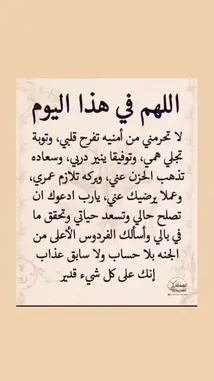 اللهم في هذا اليوم
لا تحرمني من أمنيه تفرح قلبي، وتوبة
تجلي همي، وتوفيقا ينير دربي، وسعاده
تذهب الحزن عني، وبركه تلازم عمري،
وعملا يرضيك عني، يارب ادعوك ان
تصلح حالي وتسعد حياتي وتحقق ما
في بالي وأسألك الفردوس الأعلى من
الجنه بلا حساب ولا سابق عذاب
إنك على كل شيء قدير